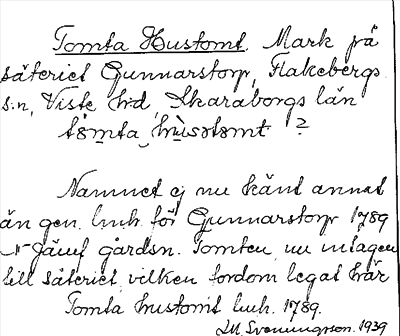 Tomta Hustomt. Mark på
säteriet Gunnarstorp, Flakebergs
s:n, Viste hd, Skaraborgs län
tomta hustomt ?
Namnet ej nu känt annat
än gen. lmh. för Gunnarstorp 1789
Jämf gårdsn. Tomten, nu intagen
till säteriet, vilken fordom legat här
Tomta hustomt lmh. 1789.
IM. Svenungsson. 1939